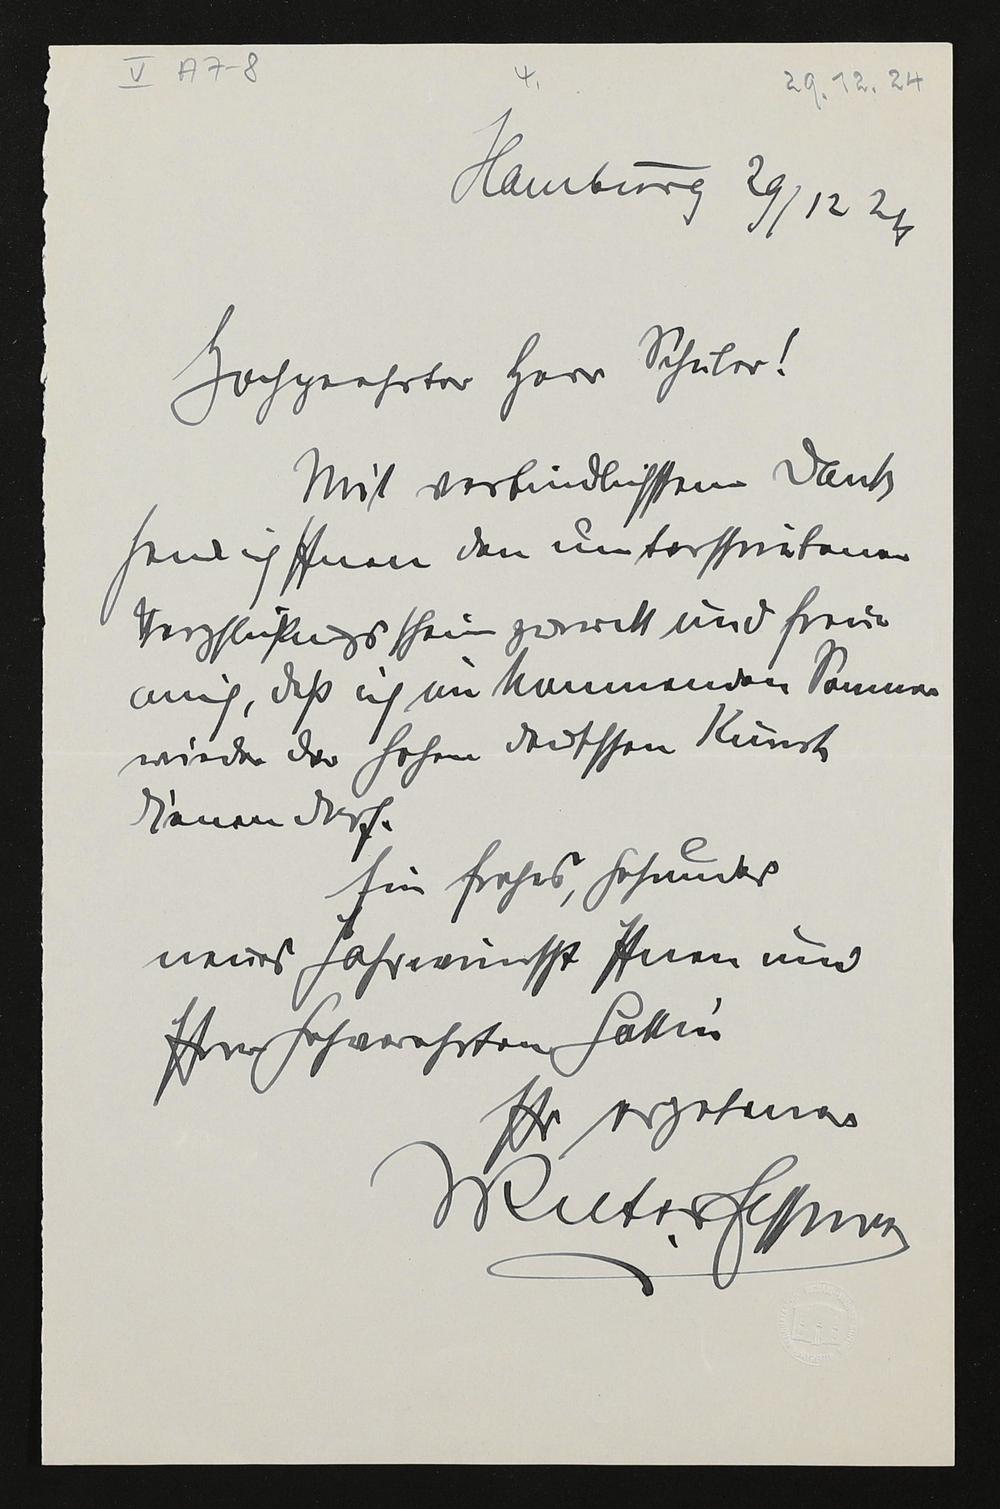 V A7-8
4.
29.12.24
Hamburg 29/12 24
Hochgeehrter Herr Schuler!
Mit verbindlichstem Dank
sende ich Ihnen den unterschriebenen
Verpflichtungsschein zurück und freue
mich, daß ich im kommenden Sommer
wieder der hohen deutschen Kunst
dienen darf.
Ein frohes, gesundes
neues Jahr wünscht Ihnen und
Ihrer hochverehrten Gattin
Ihr ergebener